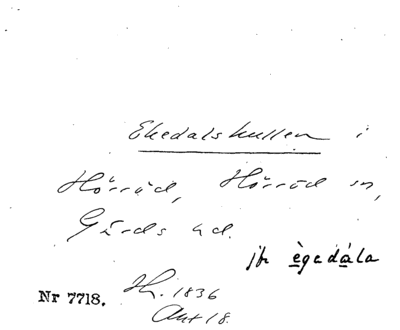 Ekedalskullen i
Hörröd, Hörröd sn,
Gärds hd.
jfr ègedála
Nr 7718. Hh. 1836
Akt 18.